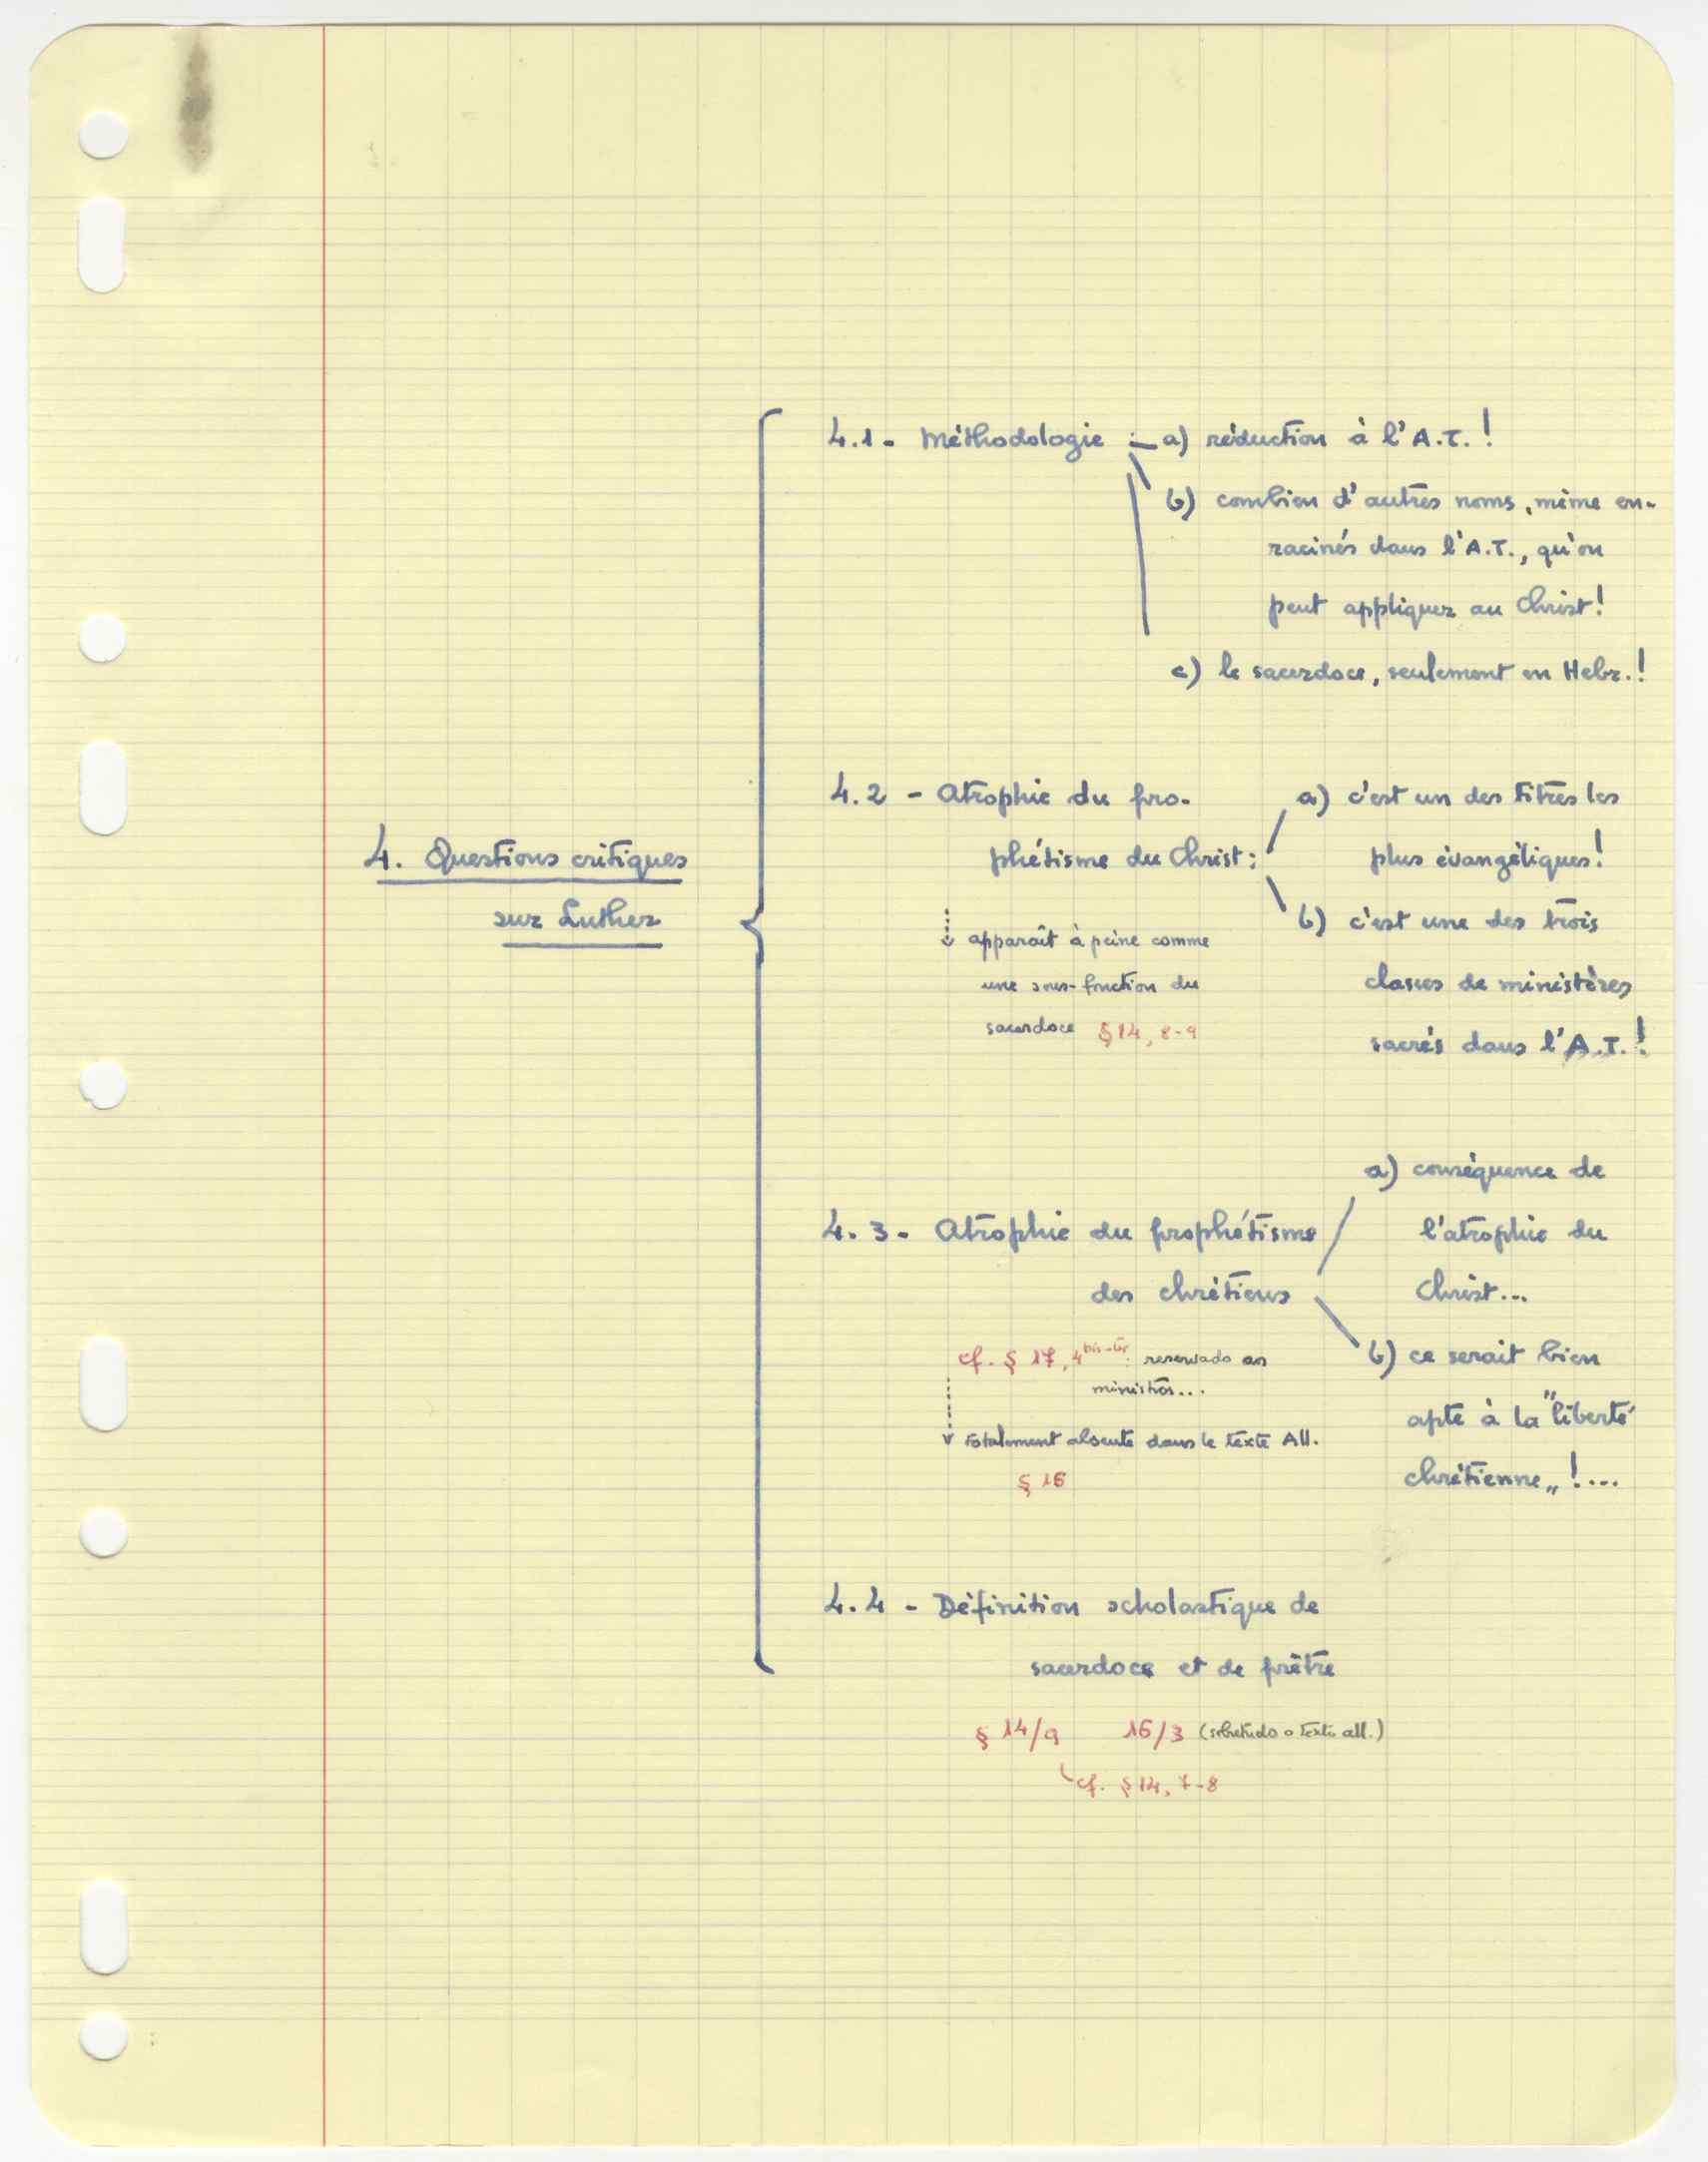 4. Questions critiques
sur Luther
4.1- Méthodologie : a) réduction à l'A.T.!
b) combien d'autres noms, même en-
racinés dans l'A.T., qu'on
peut appliquer au Christ!
c) le sacerdoce, seulement en Hebr.!
4.2 - Atrophie du pro-
phétisme du Christ:
apparaît à peine comme
une sous-fonction du
sacerdoce §14, 8-9
a) c'est un des titres les
plus évangéliques!
b) c'est une des trois
classes de ministères
sacrés dans l'A.T.!
4.3- Atrophie du prophétisme
des chrétiens
cf. § 17, 4bis-ter: reservado aos
ministros...
totalement absente dans le texte All.
§ 16
a) conséquence de
l'atrophie du
Christ...
b) ce serait bien
apte à la "liberté
chrétienne„!...
4.4 - Définition scholastique de
sacerdoce et de prêtre
§ 14/9 16/3 (sobretudo o texto all.)
cf. §14, 7-8